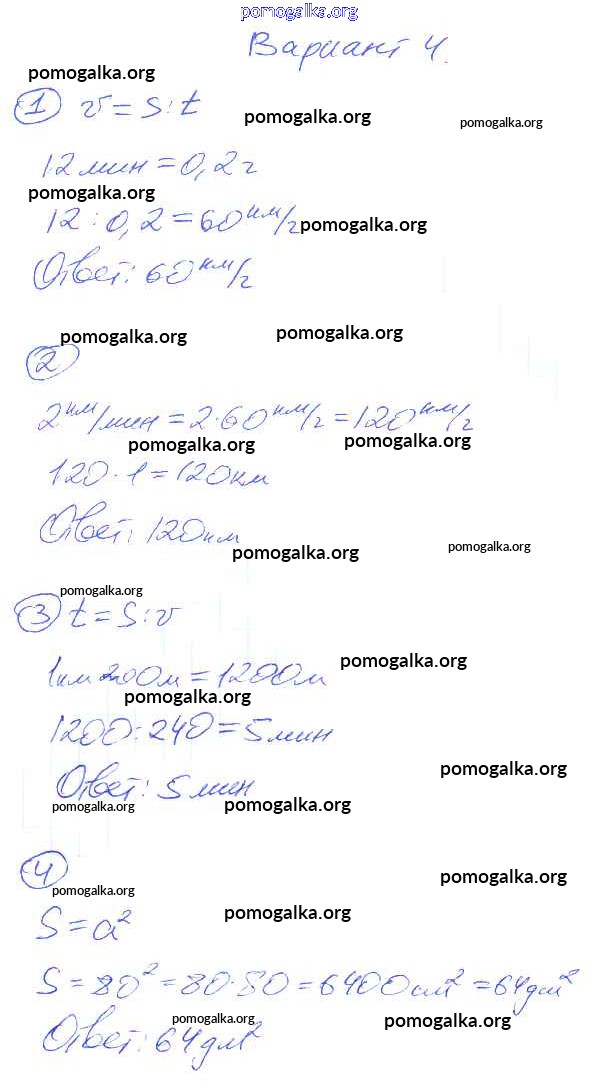 pomogalka.org
Вариант 4.
pomogalka.org
① v = S : t
pomogalka.org
pomogalka.org
12 мин = 0,2 г
pomogalka.org
12 : 0,2 = 60 км/г
pomogalka.org
Ответ: 60 км/г
pomogalka.org
pomogalka.org
②
2 км/мин = 2·60 км/г = 120 км/г
pomogalka.org
pomogalka.org
120 · 1 = 120 км
Ответ: 120 км
pomogalka.org
pomogalka.org
pomogalka.org
③ t = S : v
pomogalka.org
1 км 200 м = 1200 м
pomogalka.org
1200 : 240 = 5 мин
pomogalka.org
Ответ: 5 мин
pomogalka.org
pomogalka.org
④
pomogalka.org
pomogalka.org
pomogalka.org
S = a²
S = 80² = 80·80 = 6400 см² = 64 дм²
pomogalka.org
pomogalka.org
Ответ: 64 дм²